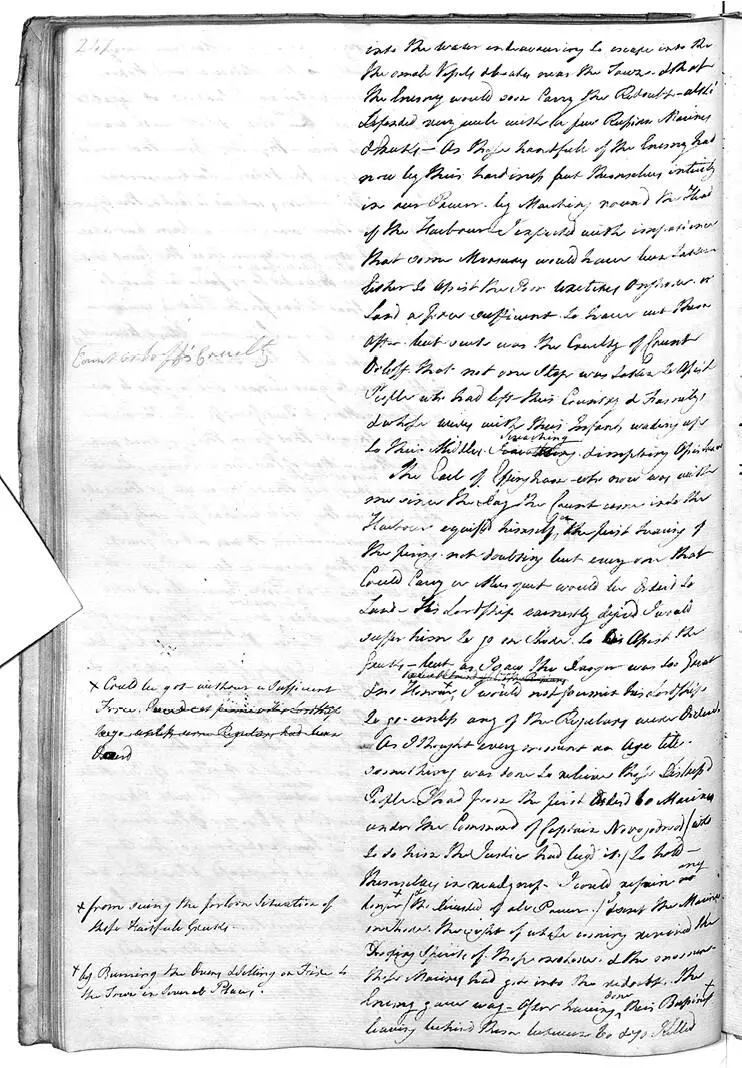 247
into the water endeavouring to escape into the
the small Vessels & boats near the Town. & that
the Enemy would soon Carry the Redoubt - altho'
defended very well with a few Russian Marines
& Greeks - As these handfull of the Enemy had
now by their hardiness put themselves intirely
in our Power. by Marching round the Head
of the Harbour I expected with impatience
that some Measures would have been taken
Either to Assist the Poor wretches on shore. or
Land a force sufficient to have cut them
off - but such was the Cruelty of Count
Orloff. that not one Step was taken to Assist
People who had left their Country & Family,
& whose wives with their Infants wading up
to their Middles. Screaching & imploring Assistance
The Earl of Effingham - who now was with
me since the day the Count came into the
Harbour equiped himself, on the first hearing of
the firing. not doubting but every one that
Could Carry a Musquet would be Orderd to
Land - His Lordship earnestly desired I would
suffer him to go on Shore. to Assist the
Greeks - but as I saw the danger was too Great
& no Honour + I would not permit his Lordship
to go. unless any of the Regulars were Orderd
As I thought every moment an Age till
something was done to relieve these Distress'd
People. I had from the first Orderd 60 Marines
under the Command of Captain
to do him the Justice had beg'd it / to hold
themselves in readyness. I could refrain no
longer + / tho divested of all Power. / I sent the Marines
on shore. the sight of whose coming revived the
Drooping Spirits of these . & the moment
these Marines had got into the redoubt. the
Enemy gave way - After having done their Business +
leaving behind them between 60 & 70 Killed
Count Orloff's Cruelty
+ Could be got - without a Sufficient
Force.
go unless some Regulars had been
+ from seeing the forlorn Situation of
these Faithfull Greeks
+ by Burning the Quay & Setting on Fire to
the Town in Several Places.